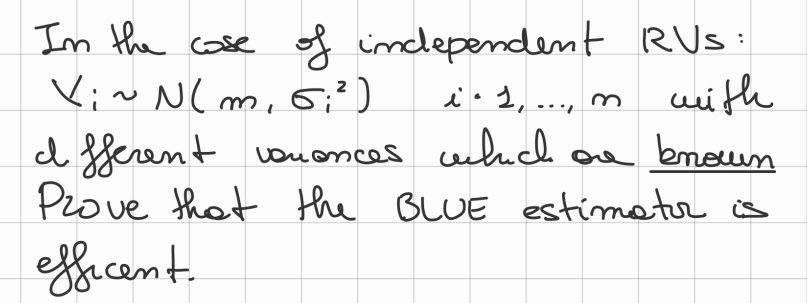 In the case of independent RVs:
Yi ~ N( m, σi² ) i = 1, ..., n with
different variances which are known
Prove that the BLUE estimator is
efficent.